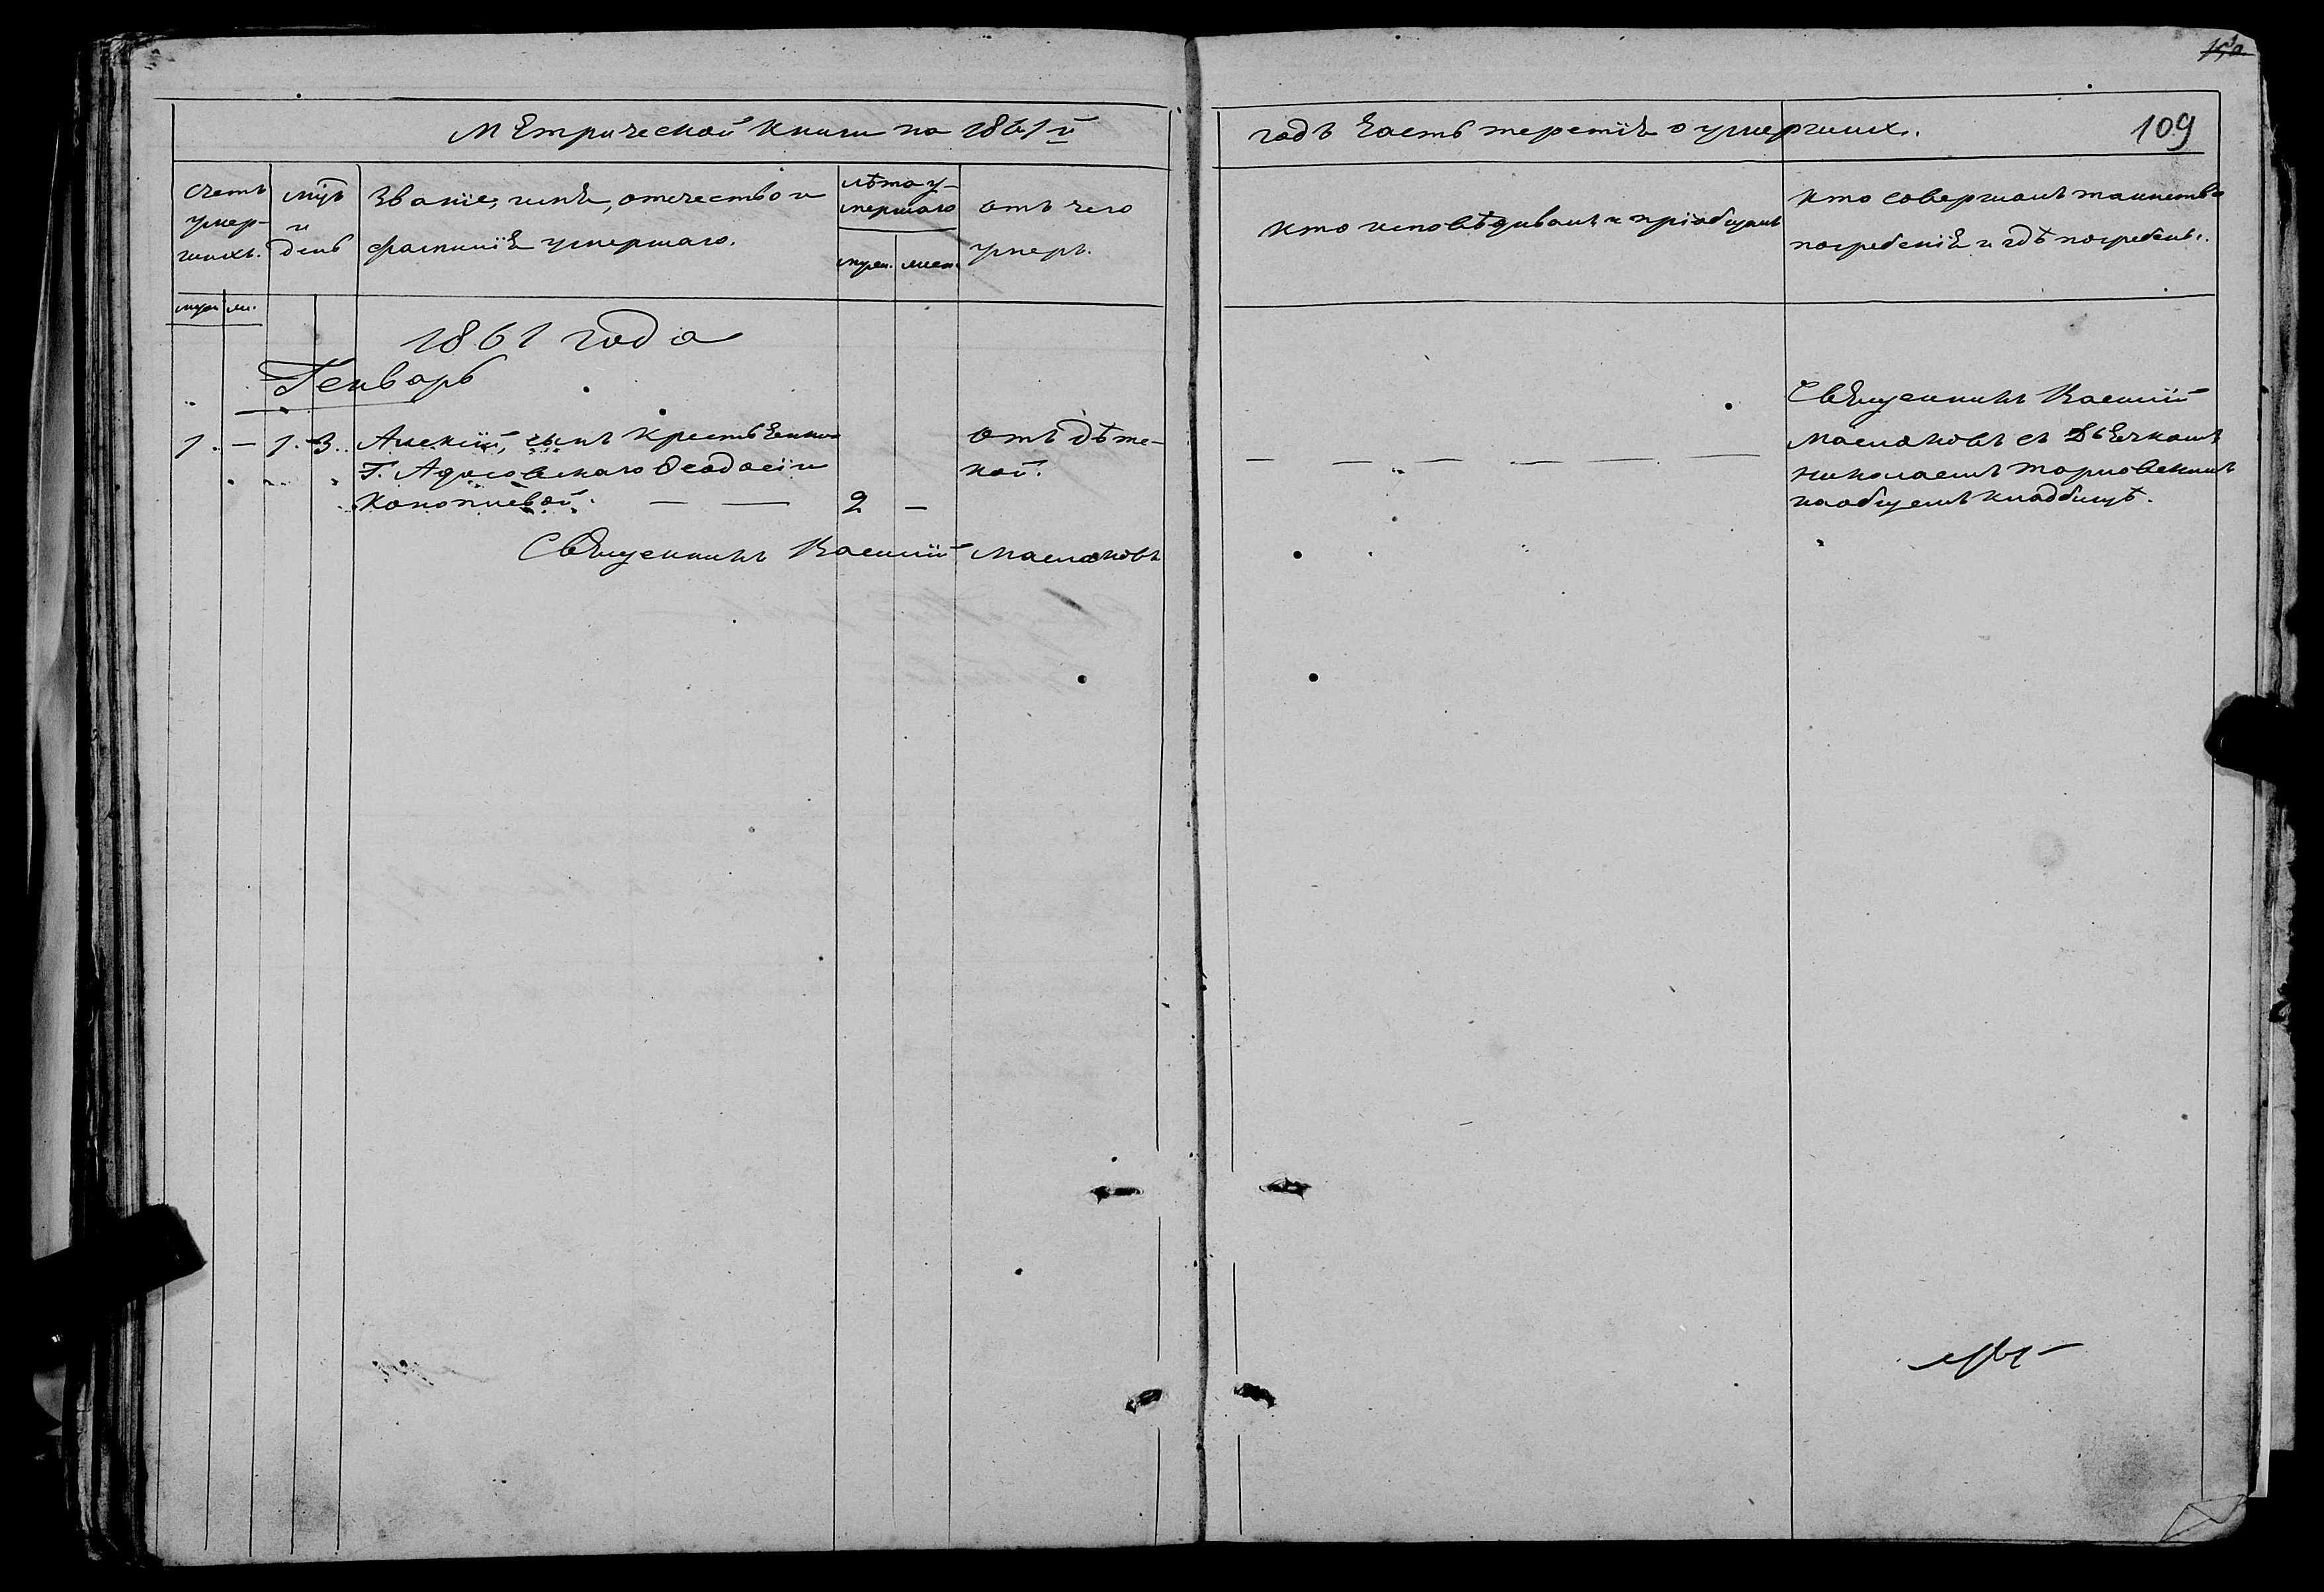 Метрической книги на 1861 й
годъ часть третія о умершихъ.
109
счетъ умер- шихъ.
муж. ж.
мцъ и день
Званіе, имя, отечество и
фамилія умершаго.
лѣта у- мершаго
муж. жен.
отъ чего
умеръ.
кто исповѣдывалъ и пріобщалъ
кто совершалъ таинство
погребенія и гдѣ погребенъ.
1861 года
Генварь
1. — 1. 3. Алексій, сынъ крестьянки
Г. Адасовскаго Ѳеодосіи
Коноплевой. — — 2 —
отъ дѣтс-
кой.
Священникъ Василій
Маслаковъ съ Дьячкомъ
Николаемъ Тарновскимъ
на общемъ кладбищѣ.
Священникъ Василій Маслаковъ